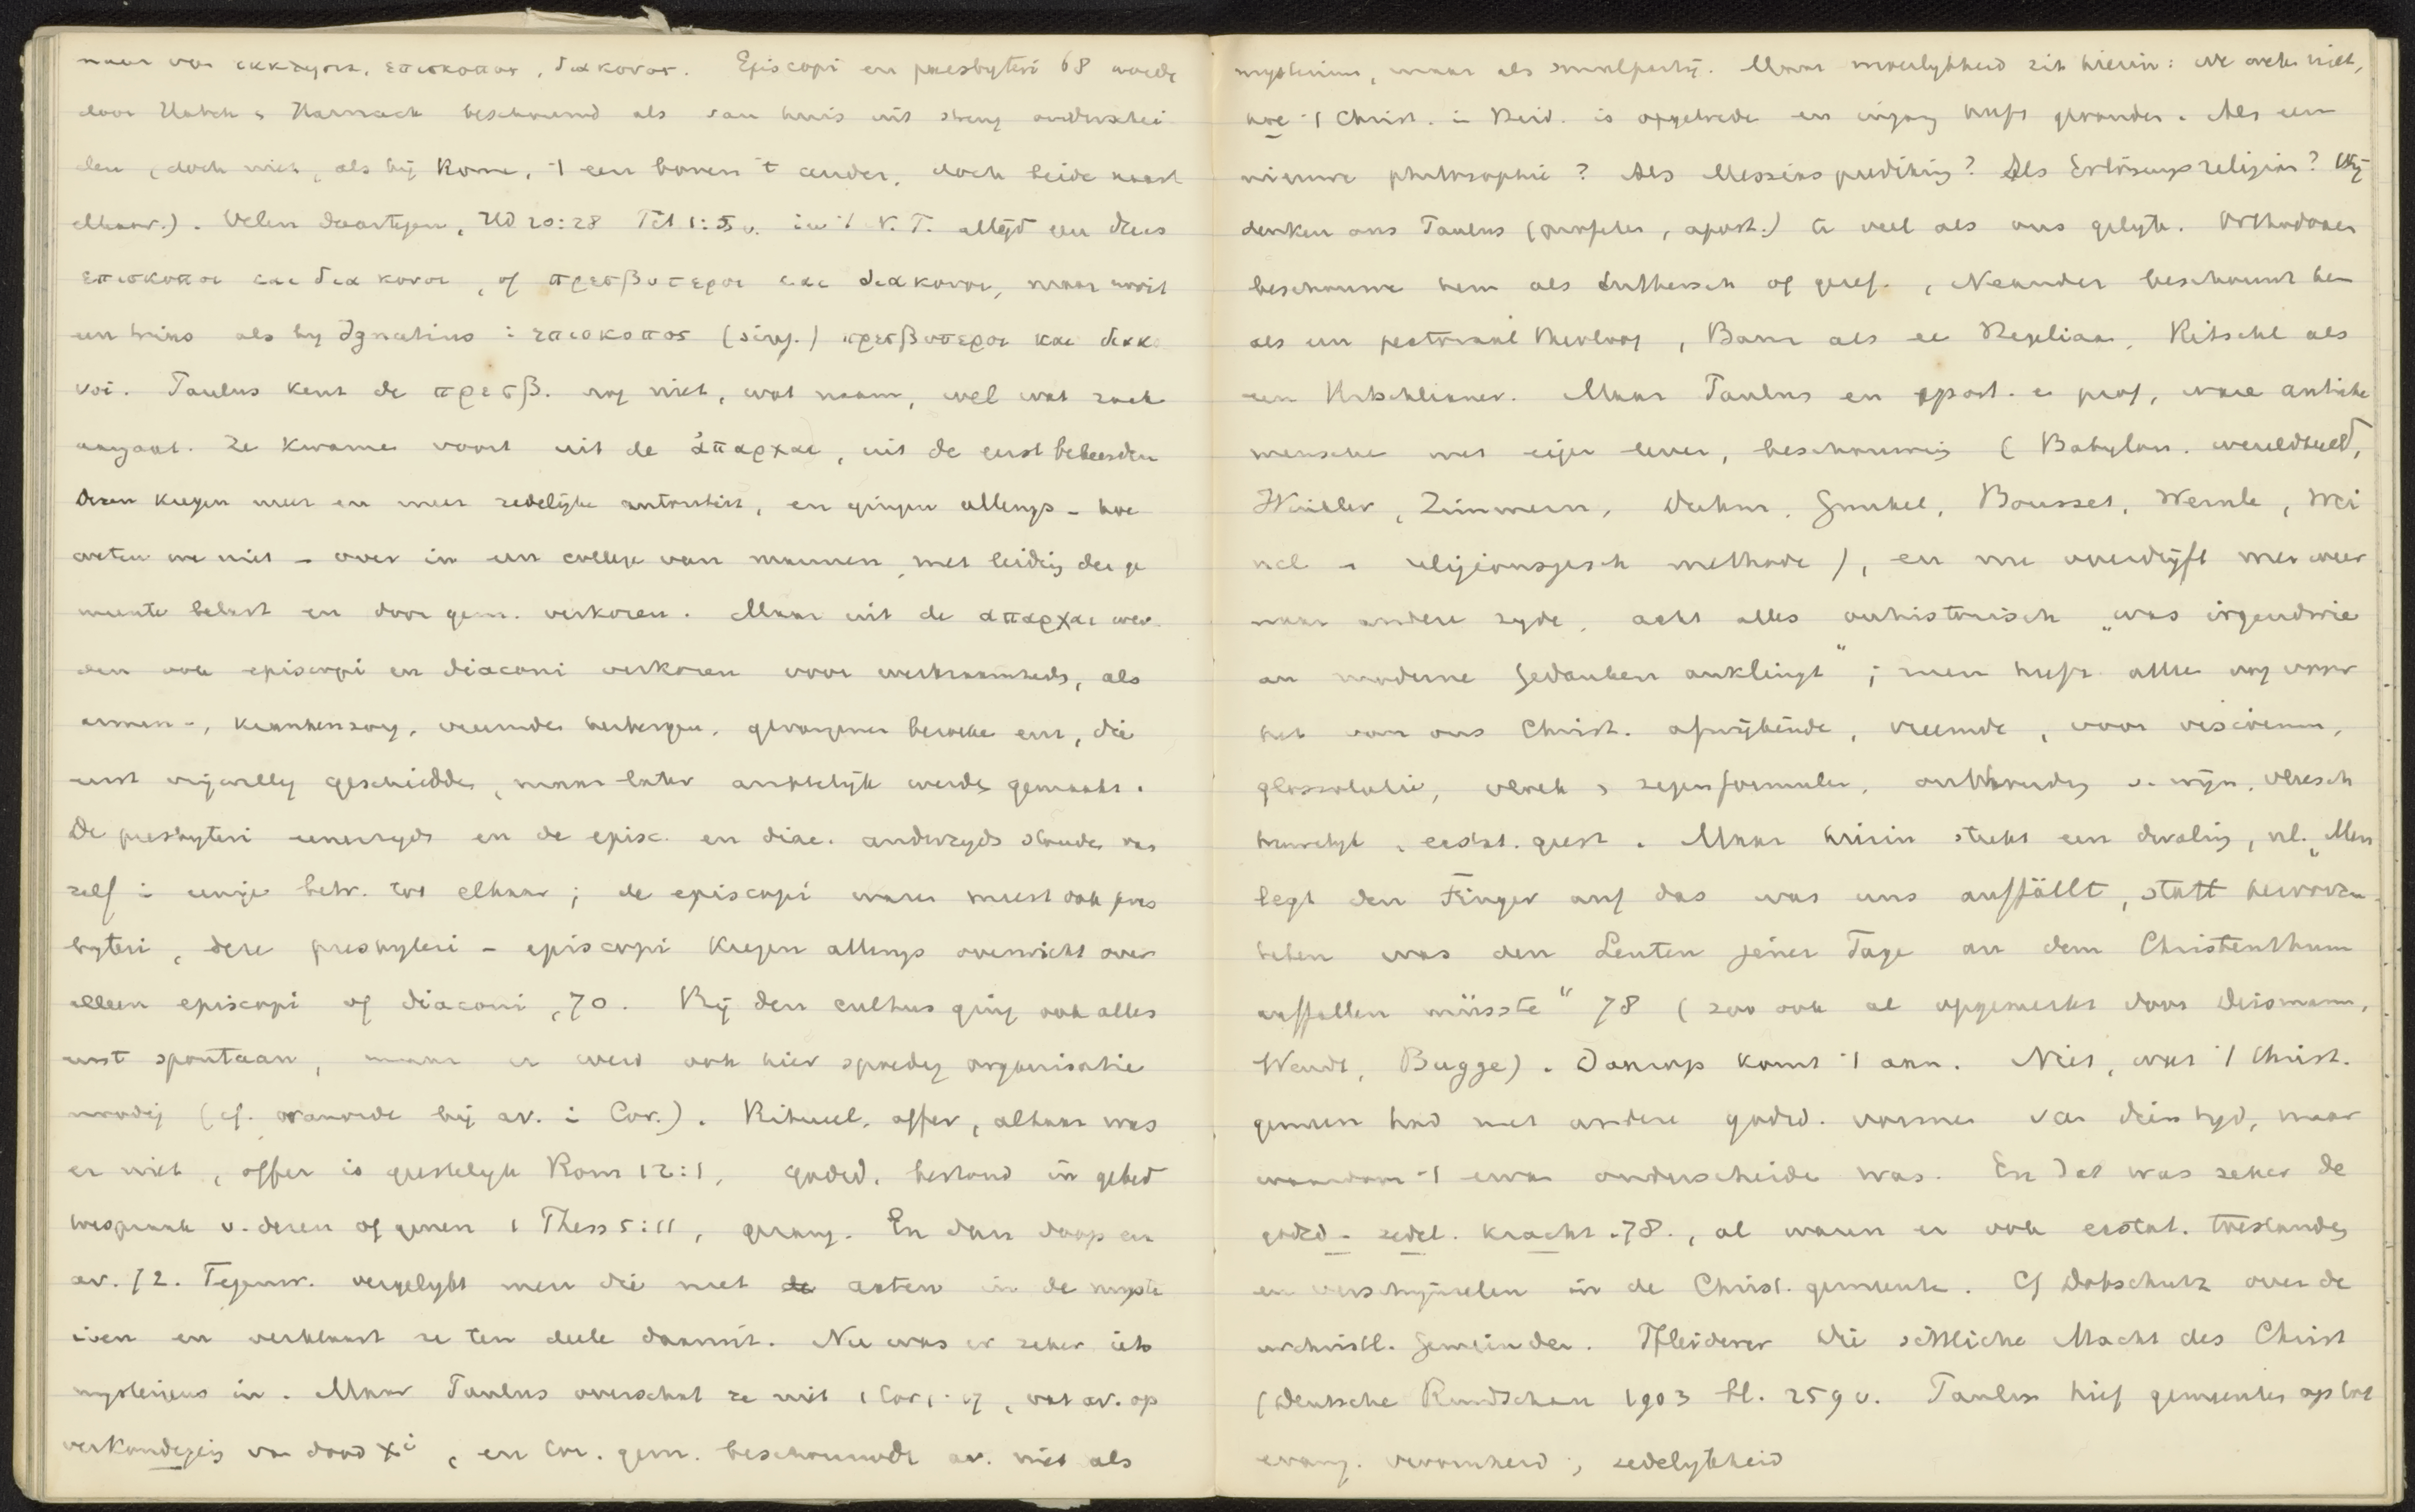 naar van εκκλησια, επισκοπος, διακονος. Episcopi en presbyteri 68 worde
door Hatch & Harnack beschouwd als van huis uit streng onderschei
den (doch niet, als bij Rome, 't een boven 't ander, doch beide naast
elkaar.). Velen daartegen, Hd 20:28 Tit 1:5 v. in 't N.T. altijd een dans
επισκοποι και διακονοι, of πρεσβυτεροι και διακονοι, maar nooit
een trias als by Ignatius: επισκοπος (sing.) πρεσβυτεροι και διακο
νοι. Paulus kent de πρεσβ. nog niet, wat naam, wel wat zaak
aangaat. Ze kwamen voort uit de ἀπαρχαι, uit de eerst bekeerden
Dezen kregen meer en meer zedelijke autoriteit, en gingen allengs - hoe
weten we niet - over in een college van mannen, met leiding der ge
meente belast en door gem. verkoren. Maar uit de απαρχαι wer
den ook episcopi en diaconi verkoren voor werkzaamheds, als
armen-, krankenzorg, vreemde herbergen, gevangenen bezoeke enz, die
eerst vrijwillig geschiedde, maar later ambtelijk werden gemaakt.
De presbyteri eenerzyds en de episc. en diac. anderzyds stonde van
zelf in eenige betr. tot elkaar; de episcopi waren meest ook pres
byteri, deze presbyteri - episcopi kregen allengs overwicht over
alleen episcopi of diaconi, 70. Bij den cultus ging ook alles
eerst spontaan, maar er werd ook hier spoedig organisatie
noodig (cf. wanorde bij av. in Cor.). Ritueel, offer, altaar was
er niet, offer is geestelijk Rom 12:1, godsd. bestond in gebed
toespraak v. dezen of genen 1 Thess 5:11, gezang. En dan doop en
av. 72. Tegenw. vergelykt men die met de acten in de myste
riën en verklaart ze ten deele daaruit. Nu was er zeker iets
mysterieus in. Maar Paulus overschat ze niet 1 Cor 1:17, vat av. op
verkondiging van dood Xi, en Cor. gem. beschouwde av. niet als
mysterium, maar als smulpartij. Maar moeilykheid zit hierin: we weten niet,
hoe 't Christ. in Heid. is opgetrede en ingang heeft gevonden. Als een
nieuwe philosophie? Als Messiasprediking? Als Erlösungsreligion? Wij
denken ons Paulus (profeten, apost.) te veel als ons gelijk. Orthodoxen
beschouwen hem als Luthersch of geref., Neander beschouwt hem
als een pectoraal theoloog, Baur als een Hegeliaan, Ritschl als
een Ritschlianer. Maar Paulus en apost. en prof. ware antieke
menschen met eigen leven, beschouwing (Babylon. wereldbeeld,
Winkler, Zimmern, Duhm, Gunkel, Bousset, Wernle, Wei
nel - religionsgesch methode), en nu overdrijft men weer
naar andere zyde, acht alles onhistorisch „was irgendwie
an moderne Gedanken anklingt"; men heeft alleen oog voor
het van ons Christ. afwijkende, vreemde, voor visioenen,
glossolalie, vloek & zegenformulen, onthouding v. wijn, vleesch
huwelyk, ecstat. geest. Maar hierin steekt een dwaling, nl. „Man
legt den Finger auf das was uns auffällt, statt hervorzu
heben was den Leuten jener Tage an dem Christenthum
auffallen müsste" 78 (zoo ook al opgemerkt door Deismann,
Wendt, Bugge). Daarop komt 't aan. Niet, wat 't Christ.
gemeen had met andere godsd. vormen van dien tyd, maar
waardoor 't ervan onderscheiden was. En dat was zeker de
godsd - zedel. kracht. 78., al waren er ook ecstat. toestanden
en verschijnselen in de Christ. gemeente. Cf Dobschutz over de
urchristl. Gemeinden. Pfleiderer Die sittliche Macht des Christ
(Deutsche Rundschau 1903 bl. 259 v. Paulus hief gemeenten op tot
evang. vroomheid; zedelykheid